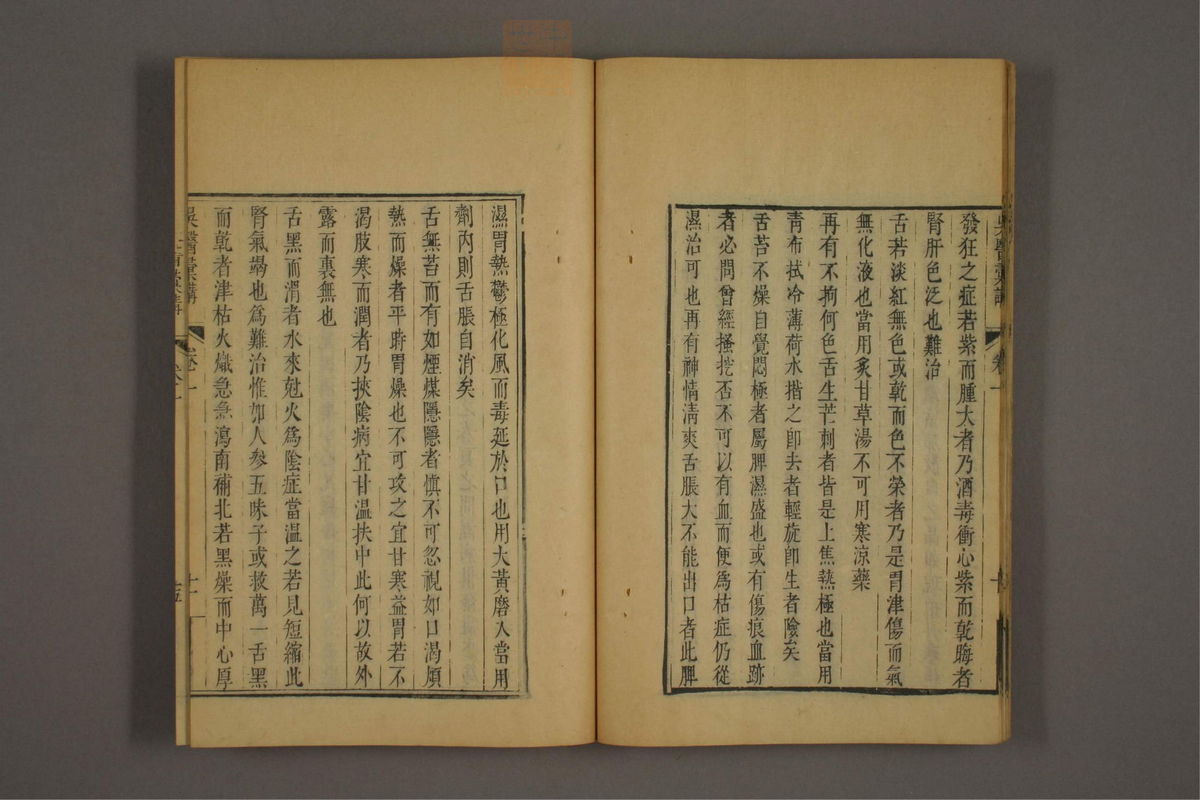 發狂之症若紫而腫大者乃酒毒衝心紫而乾晦者
腎肝色泛也難治
舌若淡紅無色或乾而色不榮者乃是胃津傷而氣
無化液也當用炙甘草湯不可用寒涼藥
再有不拘何色舌生芒刺者皆是上焦熱極也當用
青布拭冷薄荷水揩之卽去者輕旋卽生者險矣
舌苔不燥自覺悶極者屬脾濕盛也或有傷痕血跡
者必問曾經搔挖否不可以有血而便爲枯症仍從
濕治可也再有神情淸爽舌脹大不能出口者此脾
濕胃熱鬱極化風而毒延於口也用大黃磨入當用
劑內則舌脹自消矣
舌無苔而有如煙煤隱隱者愼不可忽視如口渴煩
熱而燥者平時胃燥也不可攻之宜甘寒益胃若不
渴肢寒而潤者乃挾陰病宜甘溫扶中此何以故外
露而裏無也
舌黑而滑者水來尅火爲陰症當溫之若見短縮此
腎氣竭也爲難治惟加人參五味子或救萬一舌黑
而乾者津枯火熾急急瀉南補北若黑燥而中心厚
吳醫彙講
卷一
十一